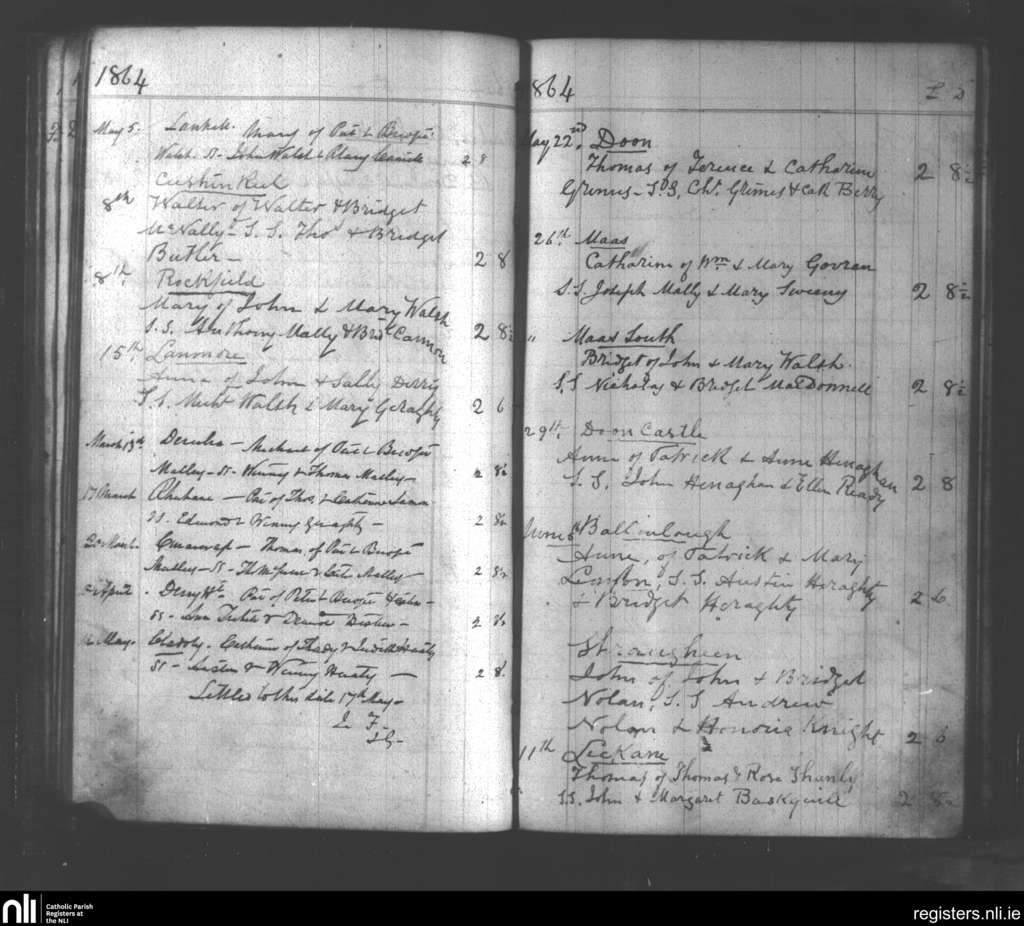 1864
May 5. Lankill. Mary of Pat & Bridget
Walsh. SS. John Walsh & Mary 2 8
Cushinkeel
8th Walter of Walter & Bridget
McNally - S.S. Thos & Bridget
Butler - 2 8
8th. Rockfield
Mary of John & Mary Walsh
S.S. Anthony Mally & Brid Cannon 2 8½
15th. Lanmore
Anna of John & Sally Derrig
S.S. Michl Walsh & Mary Geraghty 2 6
March 13th - Michael of Pat & Bridget
Malley - SS - Winny & Thomas Malley - 2 8½
17 March - Pat of Thos. & Catherine
SS. Edmond & Winny Geraghty - 2 8½
- Thomas of Pat & Bridget
Malley - SS - & Cate Malley - 2 8½
April. - Pat of Peter & Bridget
SS - & 2 8½
May. - Catherine of Thady & Judith
SS - Austin & Winny - 2 8
Settled to this date 17th May -
1864 £ S
May 22nd. Doon
Thomas of Terence & Catharine 2 8½
Grimes - S.S. Chs. Grimes & Cath Berry
26th. Maas
Catharine of Wm & Mary Govran
S.S. Joseph Mally & Mary Sweeny 2 8½
" Maas South
Bridget of John & Mary Walsh.
S.S Nicholas & Bridget MacDonnell 2 8½
29th. Doon Castle
Anne of Patrick & Anne Henaghan
S.S. John Henaghan & Ellen Ready 2 8
June 5th Ballinlough
Anne, of Patrick & Mary
S.S. Austin Heraghty
& Bridget Heraghty 2 6
John of John & Bridget
Nolan, S.S Andrew
Nolan & Honoria Knight 2 6
11th Leckane
Thomas of Thomas & Rose Shanly
S.S. John & Margaret Baskquill 2 8½
nli
Catholic Parish
Registers at
the NLI
registers.nli.ie